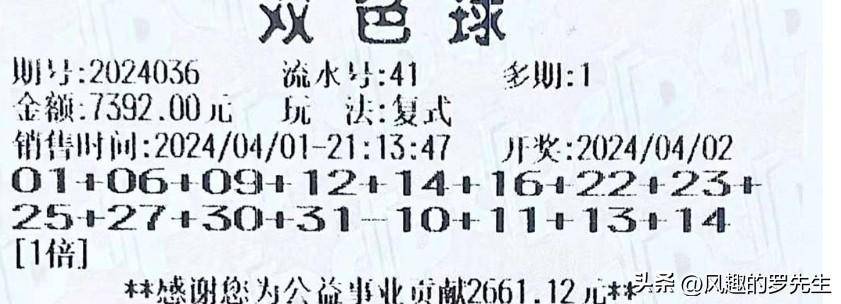 双色球
期号:2024036 流水号:41 多期:1
金额:7392.00元 玩 法:复式
销售时间:2024/04/01-21:13:47 开奖:2024/04/02
01+06+09+12+14+16+22+23+
25+27+30+31-10+11+13+14
[1倍]
**感谢您为公益事业贡献2661.12元**
头条 @风趣的罗先生